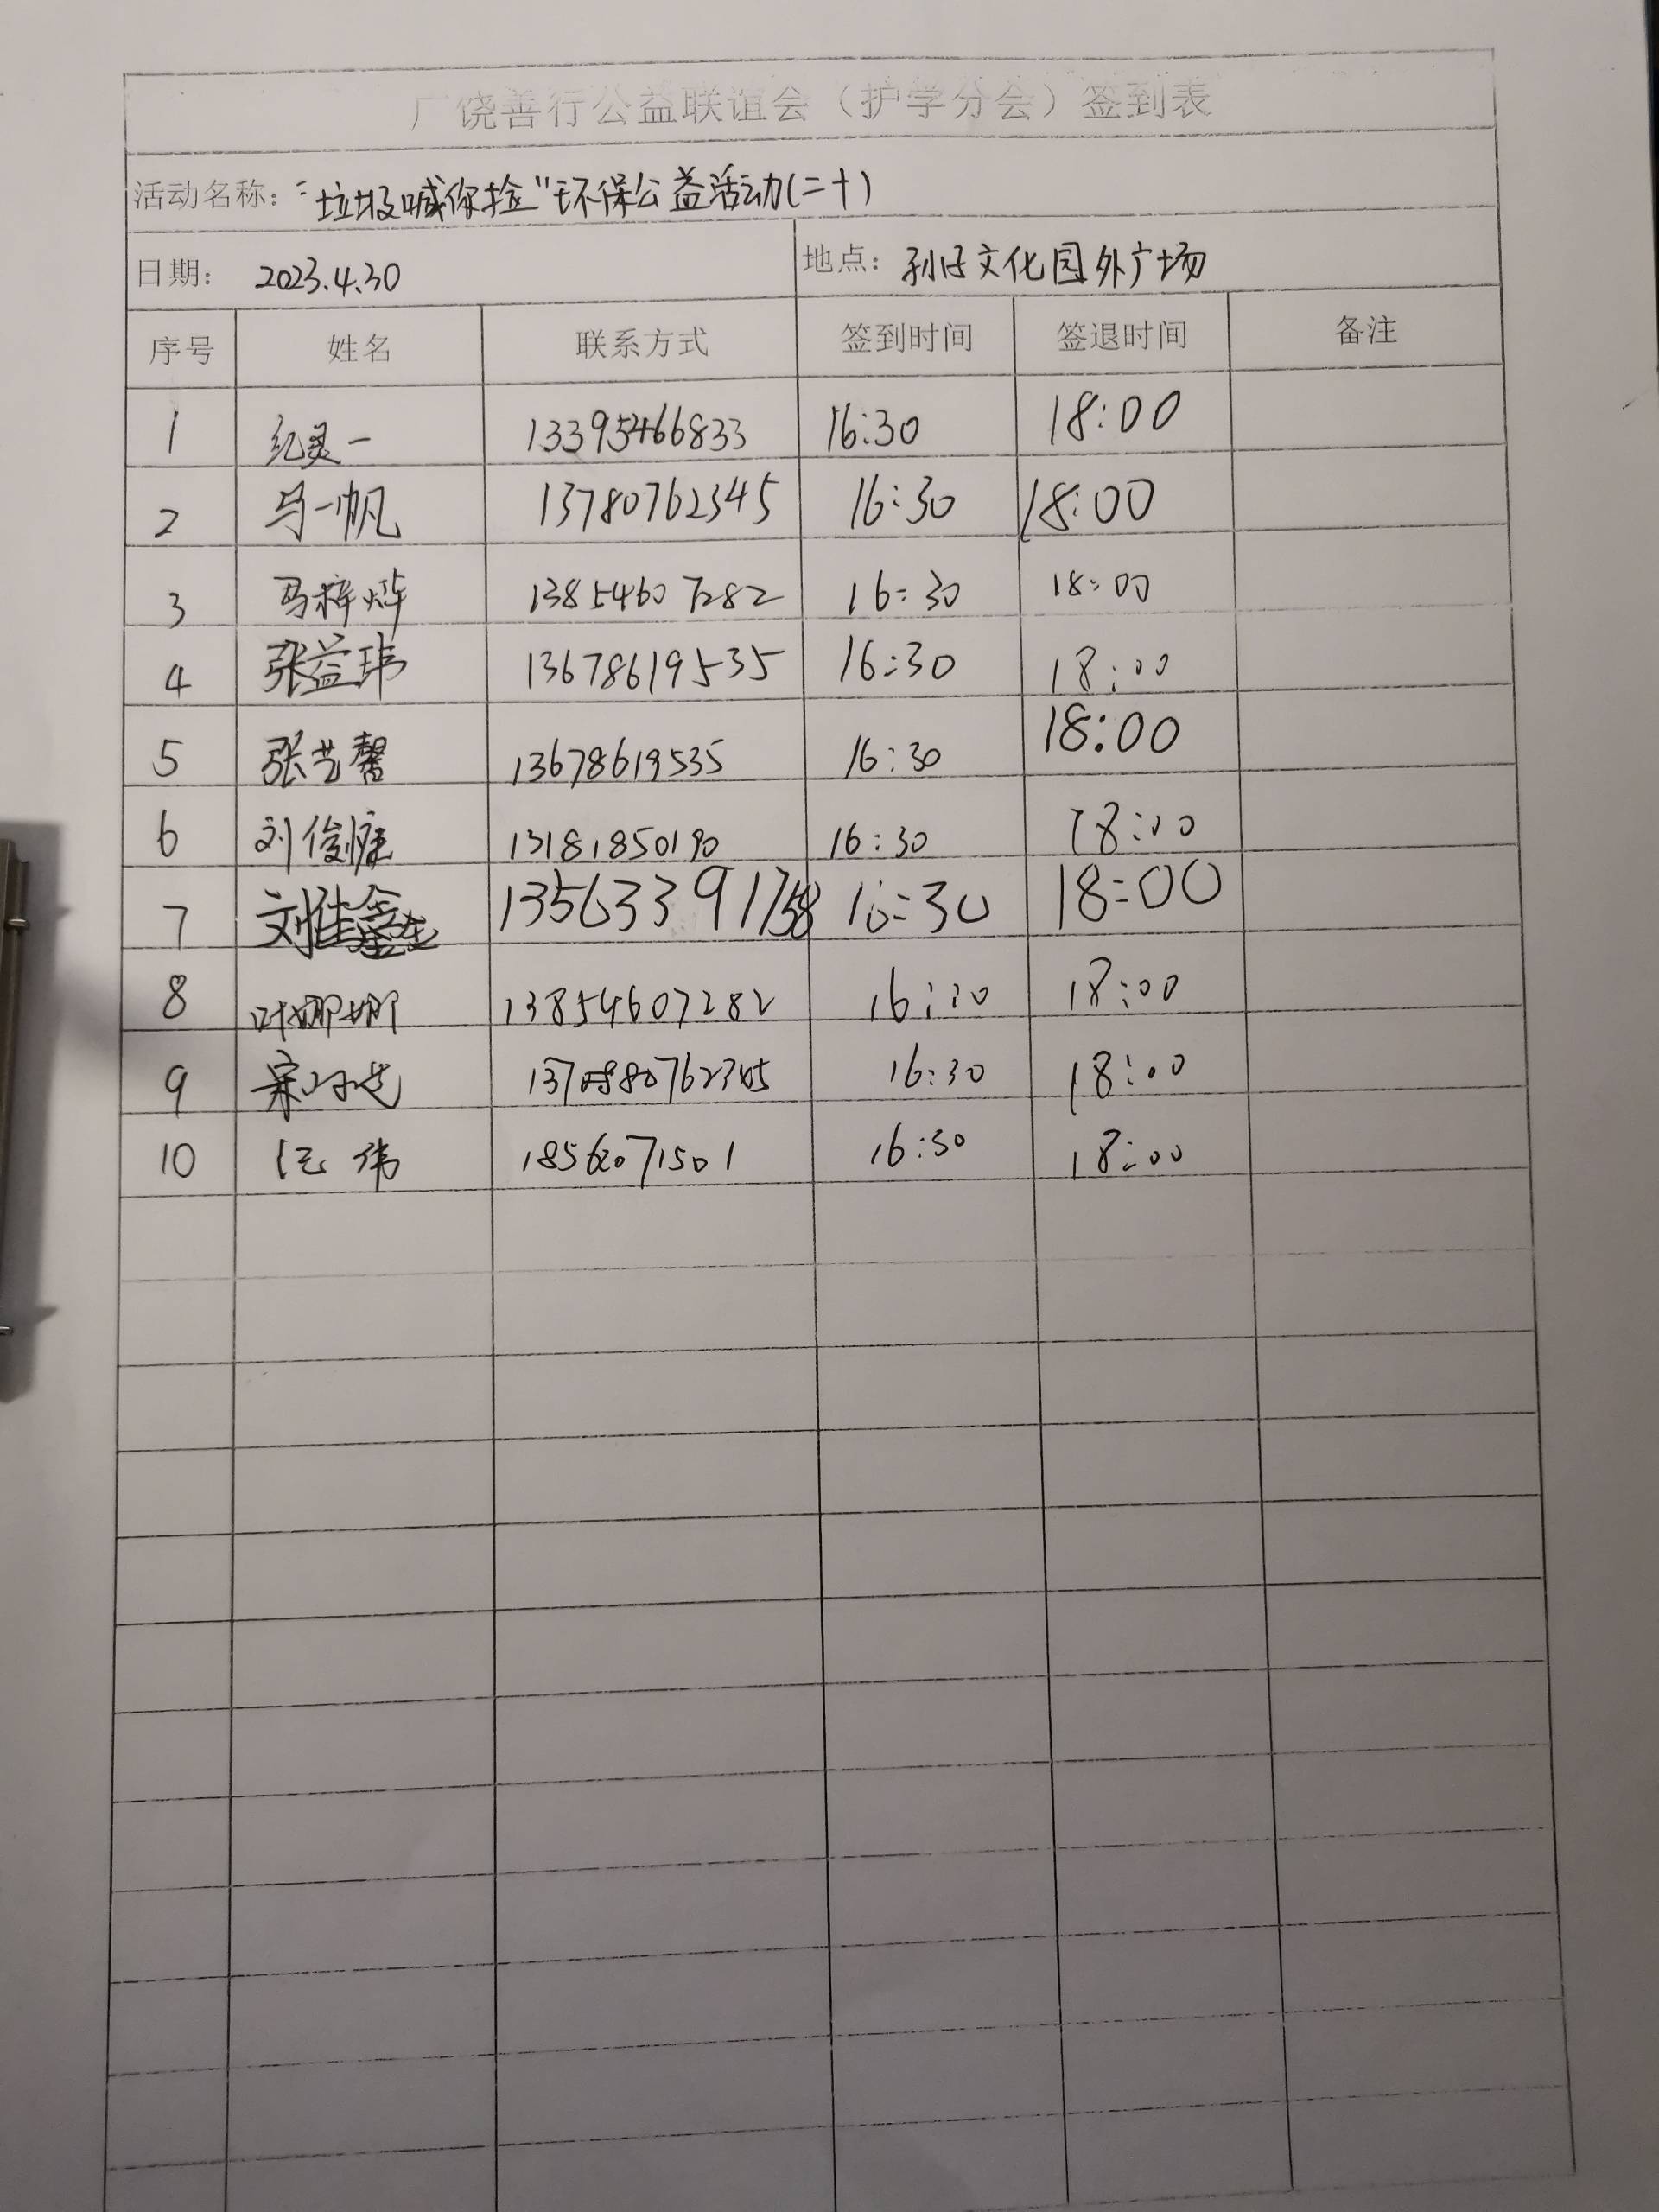 广饶善行公益联谊会（护学分会）签到表
活动名称：“垃圾喊你捡”环保公益活动(二十)
日期： 2023.4.30 地点：孙子文化园外广场
序号 姓名 联系方式 签到时间 签退时间 备注
1 纪灵一 13395466833 16:30 18:00
2 马一帆 13780762345 16:30 18:00
3 马梓烨 13854607282 16:30 18:00
4 张益玮 13678619535 16:30 18:00
5 张艺馨 13678619535 16:30 18:00
6 刘俊 13181850190 16:30 18:00
7 刘佳鑫 16:30 18:00
8 叶娜娜 13854607282 16:30 18:00
9 16:30 18:00
10 伟 18562071501 16:30 18:00